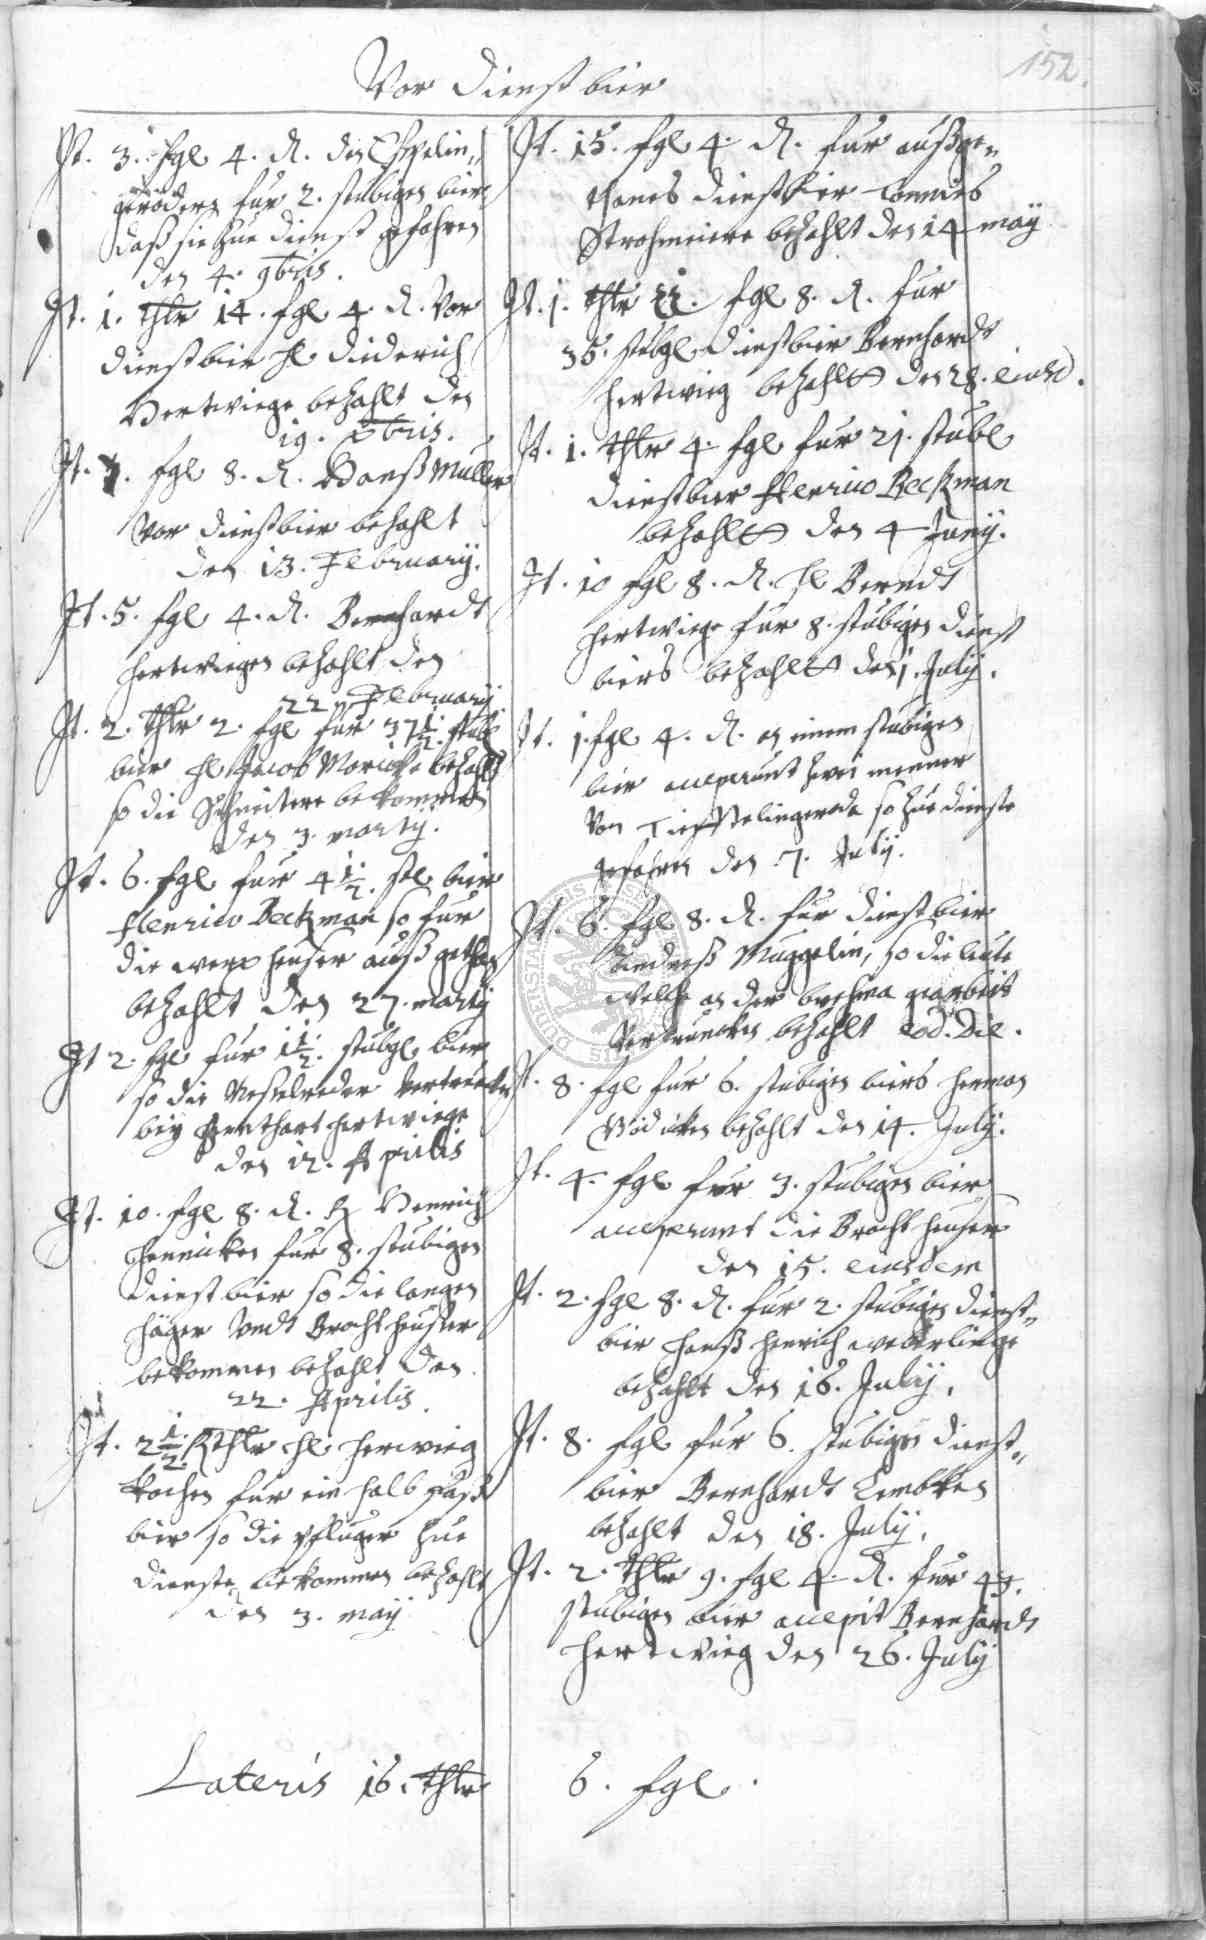 152.
Vor Dienstbier
It. 3. fgl 4. d. den Espelin„
geröders fur 2. stubigen bier
daß sie zue dienst gefahren
den 4. 9bris.
It. 1. thlr 14. fgl 4. d. Vor
dienstbier hl Diderich
Hertwiege bezahlt den
19. xbris.
It. fgl 8. d. Hanß Muller
Vor dienstbier bezahlt
den 13. February.
It. 5. fgl 4. d. Bernhardt
Hertwiegen bezahlt den
22 February
It. 2. thlr 2. fgl fur 37 1/2. stubl
bier hl Jacob bezahlt
so die Schneitere bekommen
den 3. marty.
It. 6. fgl fur 4 1/2. stl bier
Henrico Beckman so fur
die heuser auß gethan
bezahlt den 27. marty
It 2. fgl fur 1 1/2. stubgl bier
so die Vertruncken
bey Hertwiege
den 12. Aprilis
It. 10. fgl 8. d. H Henrich
fur 8. stubigen
dienstbier so die langen
häger Vndt Brochtheuser
bekommen bezahlt den
22. Aprilis.
It. 2 1/2. Rthlr hl Herwieg
Kochen fur ein halb faß
bier so die pfluger zue
dienste bekommen bezahlt
den 3. maij
It. 15. fgl 4. d. fur außge„
thanes dienstbier tonnies
Strohmeiere bezahlt den 14 maÿ
It. 1. thlr fgl 8. d. fur
35. stubgl dienstbier Bernhardt
Hertwieg bezahlt den 28. eiusd.
It. 1. thlr 4. fgl fur 21. stubl
dienstbier Henrico Beckman
bezahlt den 4 Junij.
It. 10 fgl 8. d. hl Berndt
Hertwiege fur 8. stubigen dienst
biers bezahlt den 1. July.
It. 1. fgl 4. d. an einem stubigen
bier acceperunt zwei menner
Von Tieffstelingerode so zue dienste
gefahren den 7. July.
It. 6. fgl 8. d. fur dienstbier
Andreß Müggelin, so die leute
welche an der gearbeit
Vertruncken bezahlt eod. die.
It. 8. fgl fur 6. stubigen biers Herman
Wödicken bezahlt den 14. July.
It. 4. fgl fur 3. stubigen bier
acceperunt die Brochtheuser
den 15. eiusdem
It. 2. fgl 8. d. fur 2. stubigen dienst„
bier Hanß Henrich weberlinge
bezahlt den 16. July.
It. 8. fgl fur 6. stubigen dienst„
bier Bernhardt Lembken
bezahlt den 18. July.
It. 2. thlr 9. fgl 4. d. fur 43.
stubigen bier accepit Bernhardt
Hertwieg den 26. July
Lateris 16. thlr 6. fgl.